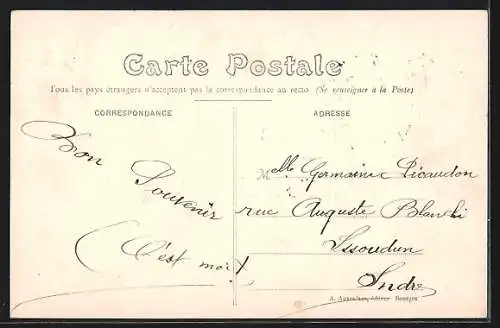 Carte Postale
Tous les pays étrangers n'acceptent pas la correspondance au recto (Se renseigner à la Poste)
CORRESPONDANCE
ADRESSE
Bon
Souvenir
(C'est moi!)
Melle Germaine Picaudon
rue Auguste Blanki
Issoudun
Indre
éditeur Bourges